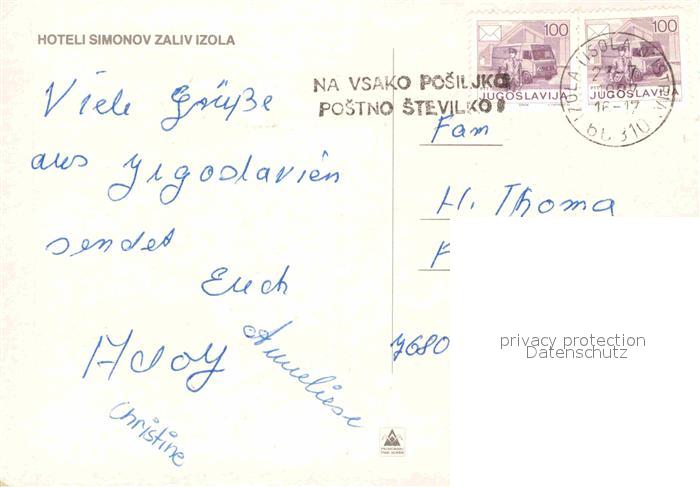 HOTELI SIMONOV ZALIV IZOLA
100
100
JUGOSLAVIJA
JUGOSLAVIJA
NA VSAKO POŠILJKO
POŠTNO ŠTEVILKO!
IZOLA ISOLA
16-17
66310
Viele Grüße
aus Jugoslavien
sendet
Euch
Anneliese
Christine
Fam
H. Thoma
7680
privacy protection
Datenschutz